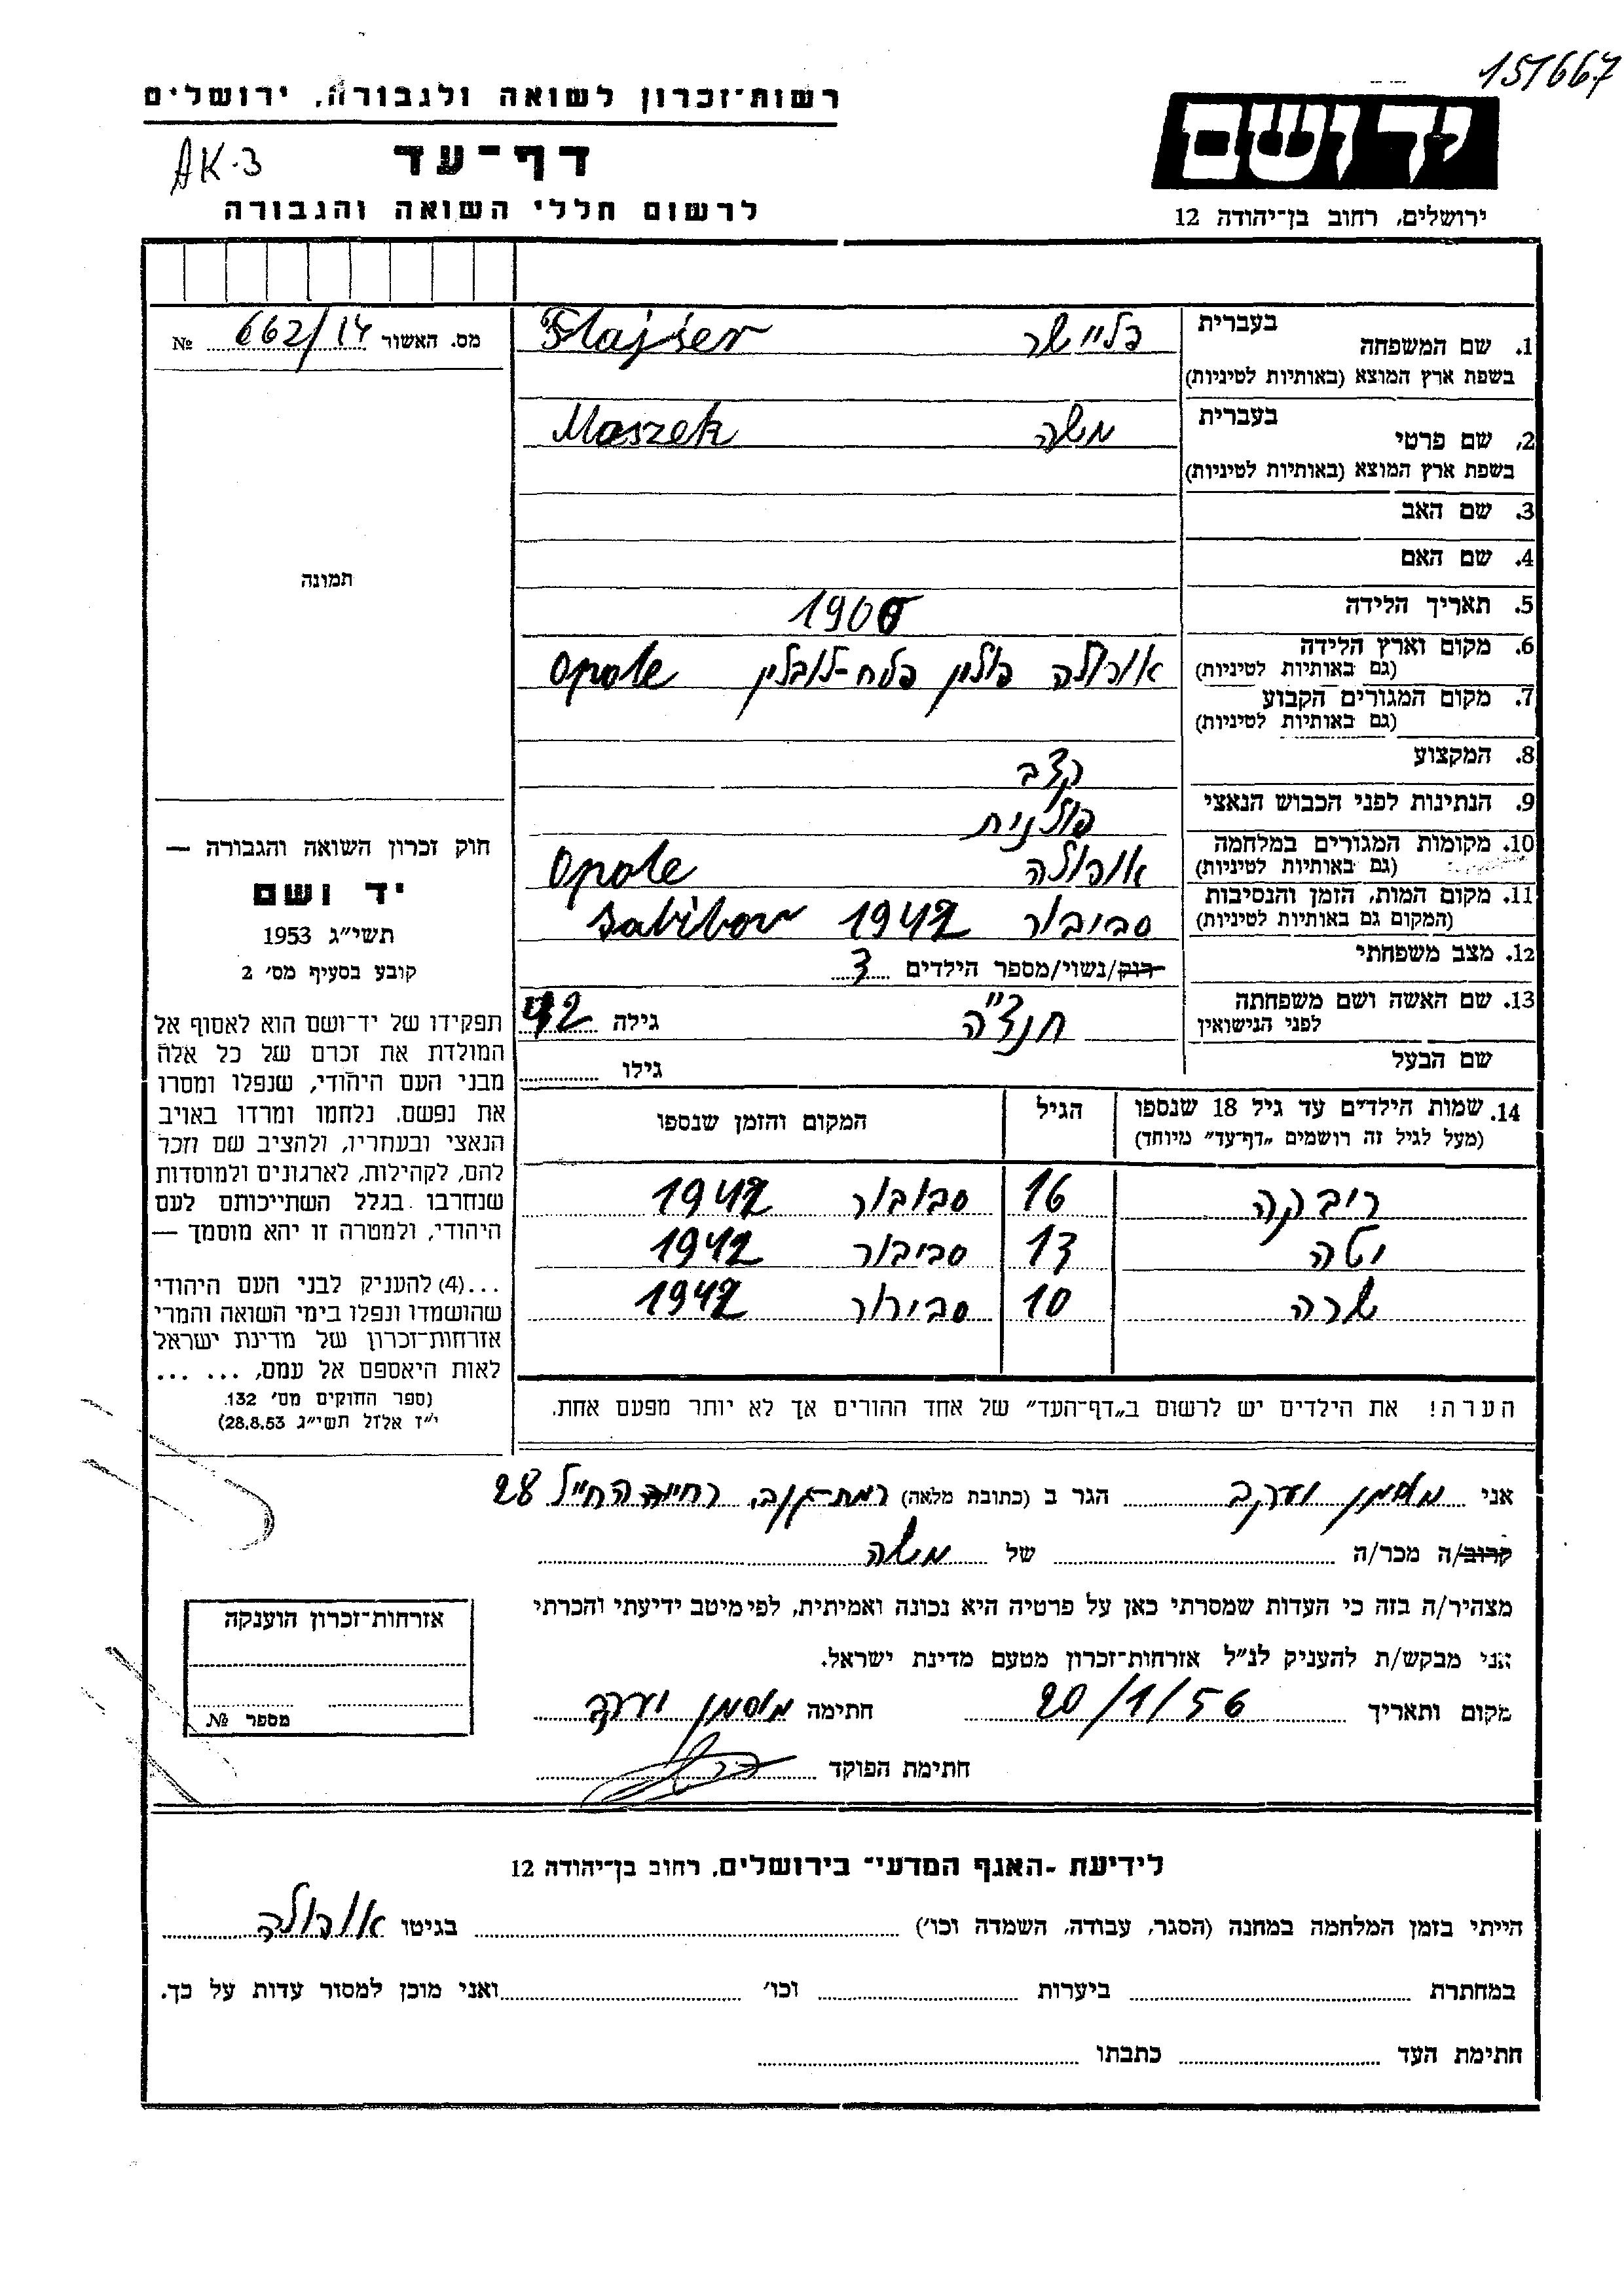 151667
רשות־זכרון לשואה ולגבורה, ירושלים
ידושם
AK-3
דף־עד
לרשום חללי השואה והגבורה
ירושלים, רחוב בן־יהודה 12
1. שם המשפחה בעברית פליישר Flajšer
בשפת ארץ המוצא (באותיות לטיניות)
מס. האשור 662/14 №
2. שם פרטי בעברית משה Moszek
בשפת ארץ המוצא (באותיות לטיניות)
3. שם האב
4. שם האם
תמונה
5. תאריך הלידה 1900
6. מקום וארץ הלידה אופולה פולין פלח-לובלין Opole
(גם באותיות לטיניות)
7. מקום המגורים הקבוע
(גם באותיות לטיניות)
8. המקצוע קצב
9. הנתינות לפני הכבוש הנאצי פולנית
10. מקומות המגורים במלחמה אופולה Opole
(גם באותיות לטיניות)
11. מקום המות, הזמן והנסיבות סביבור 1942 Sabibor
(המקום גם באותיות לטיניות)
12. מצב משפחתי רווק/נשוי/מספר הילדים 3
13. שם האשה ושם משפחתה לפני הנישואין חנצ'ה גילה 42
שם הבעל גילו
14. שמות הילדים עד גיל 18 שנספו הגיל המקום והזמן שנספו
(מעל לגיל זה רושמים „דף־עד” מיוחד)
ריבקה 16 סבובור 1942
יטה 13 סביבור 1942
שרה 10 סביבור 1942
הערה! את הילדים יש לרשום ב„דף־העד” של אחד ההורים אך לא יותר מפעם אחת.
חוק זכרון השואה והגבורה —
יד ושם
תשי״ג 1953
קובע בסעיף מס׳ 2
תפקידו של יד־ושם הוא לאסוף אל
המולדת את זכרם של כל אלה
מבני העם היהודי, שנפלו ומסרו
את נפשם, נלחמו ומרדו באויב
הנאצי ובעוזריו, ולהציב שם וזכר
להם, לקהילות, לארגונים ולמוסדות
שנחרבו בגלל השתייכותם לעם
היהודי, ולמטרה זו יהא מוסמך —
...(4) להעניק לבני העם היהודי
שהושמדו ונפלו בימי השואה והמרי
אזרחות־זכרון של מדינת ישראל
לאות היאספם אל עמם, ... ...
(ספר החוקים מס׳ 132.
י״ז אלול תשי״ג 28.8.53)
אני הגר ב (כתובת מלאה) 28
קרוב/ה מכר/ה של משה
מצהיר/ה בזה כי העדות שמסרתי כאן על פרטיה היא נכונה ואמיתית, לפי מיטב ידיעתי והכרתי
אני מבקש/ת להעניק לנ״ל אזרחות־זכרון מטעם מדינת ישראל.
מקום ותאריך 20/1/56 חתימה
חתימת הפוקד
אזרחות־זכרון הוענקה
מספר №
לידיעת -האגף המדעי־ בירושלים, רחוב בן־יהודה 12
הייתי בזמן המלחמה במחנה (הסגר, עבודה, השמדה וכו׳) בגיטו אופולה
במחתרת ביערות וכו׳ ואני מוכן למסור עדות על כך.
חתימת העד כתבתו